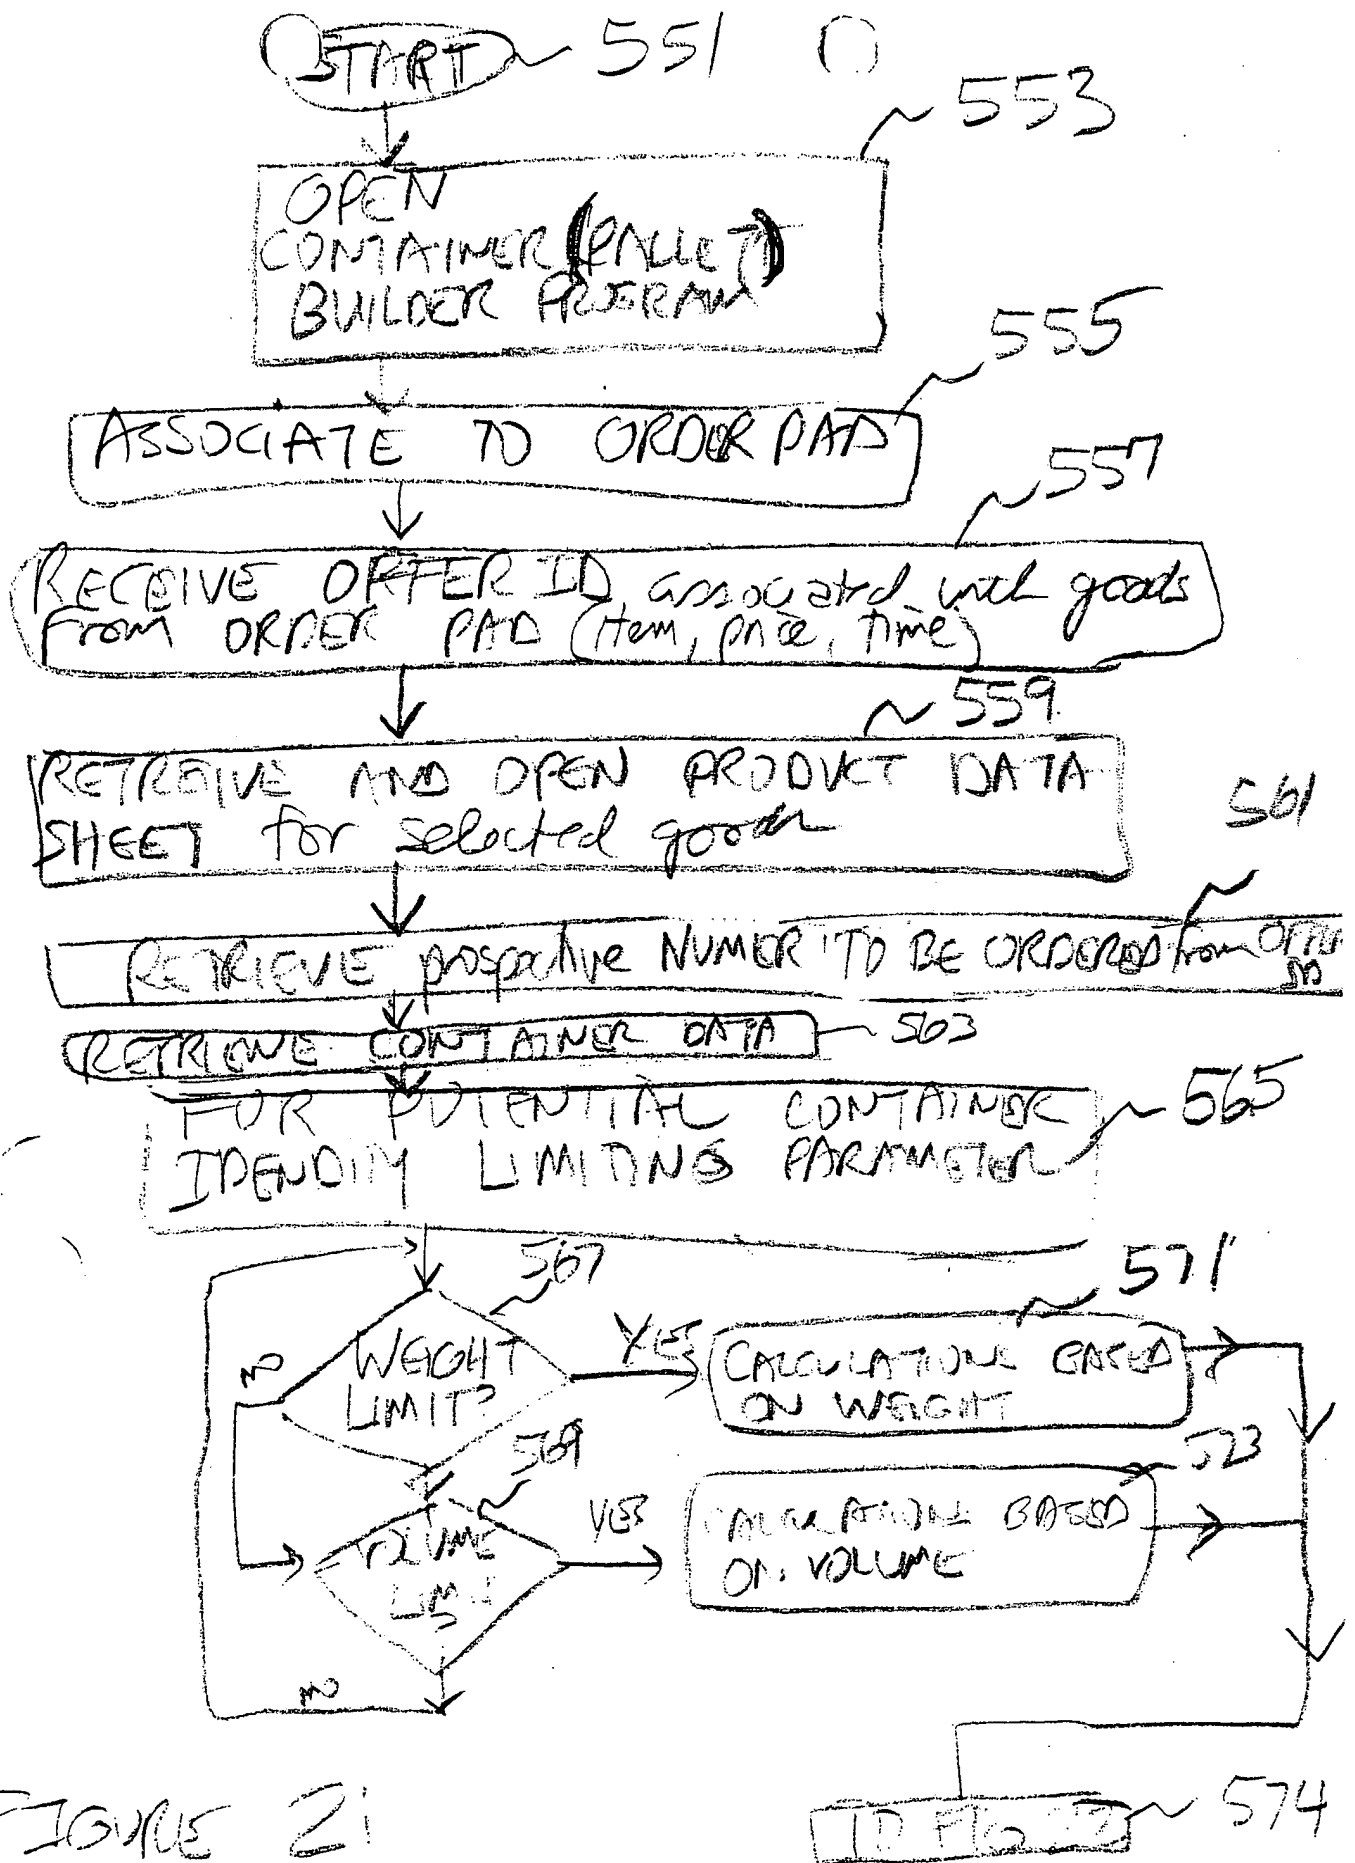 START 551
553
OPEN
CONTAINER (PALLET)
BUILDER PROGRAM
555
ASSOCIATE TO ORDER PAD
557
RECEIVE OFFER ID associated with goods
From ORDER PAD (item, price, time)
559
RETREIVE AND OPEN PRODUCT DATA
SHEET for selected goods
561
RETRIEVE prospective NUMER TO BE ORDERED from
RETRIEVE CONTAINER DATA 563
FOR POTENTIAL CONTAINER 565
IDENDIFY LIMITING PARAMETER
567
571
WEIGHT
LIMIT?
NO
YES
CALCULATIONS BASED
ON WEIGHT
569
VOLUME
LIMIT
?
YES
CALCULATIONS BASED
ON VOLUME
NO
FIGURE 21
TO FIG 574